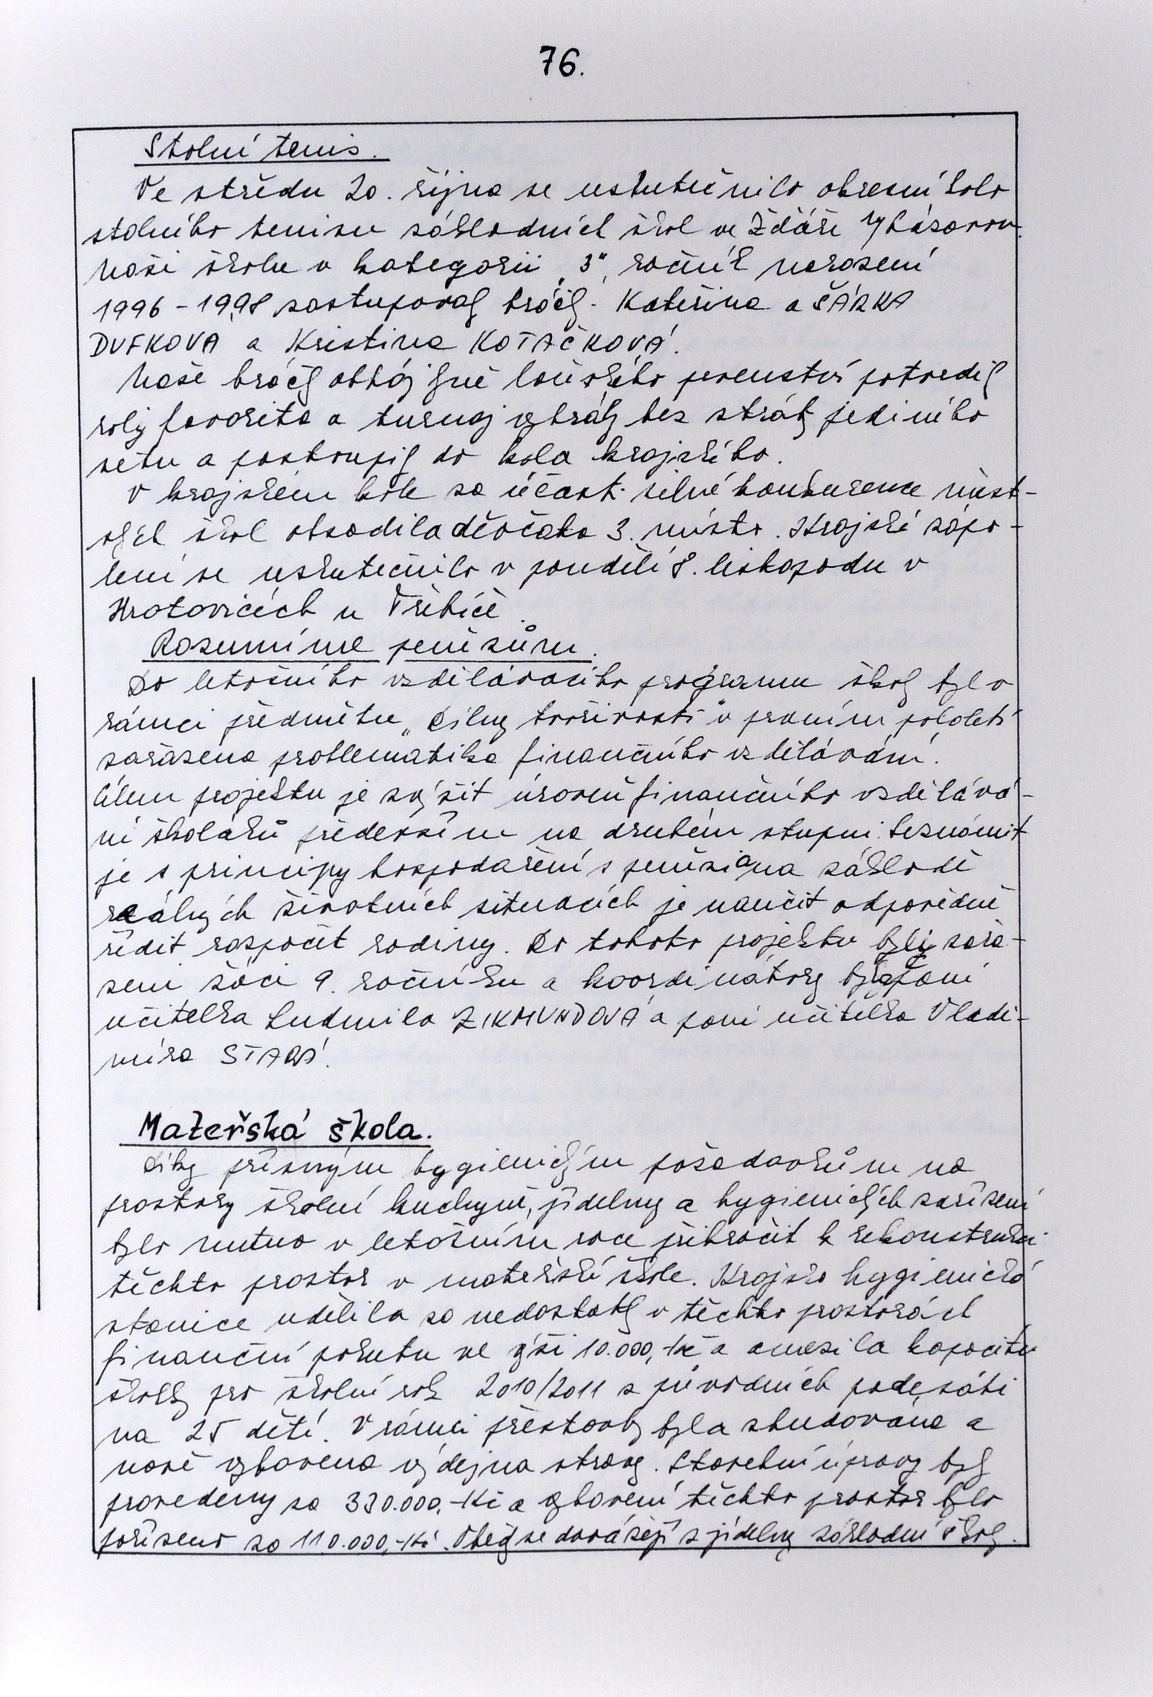 76.
Stolní tenis.
Ve středu 20. října se uskutečnilo okresní kolo
stolního tenisu základních škol ve Žďáře n/Sázavou.
Naši školu v kategorii „3“, ročník narození
1996 - 1998 zastupovaly hráčky. Kateřina a ŠÁRKA
DUFKOVA a Kristina KOTAČKOVÁ.
Naše hráčky obhájkyně loňského prvenství potvrdily
roly favorita a turnaj vyhrály bez ztráty jediného
setu a postoupily do kola krajského.
V krajském kole za účasti silné konkurence měst-
ských škol obsadila děvčata 3. místo. Krajské zápo-
lení se uskutečnilo v pondělí 8. listopadu v
Hrotovicích u Třebíče.
Rozumíme penězům.
Do letošního vzdělávacího programu školy bylo v
rámci předmětu „Dílny tvořivosti“ v prvním pololetí
zařazena problematika finančního vzdělávání.
Cílem projektu je zvýšit úroveň finančního vzdělává-
ní školáků především na druhém stupni. Seznámit
je s principy hospodaření s penězi a na základě
reálných životních situacích je naučit odpovědně
řídit rozpočet rodiny. Do tohoto projektu byli zařa-
zeni žáci 9. ročníku a koordinátory byly paní
učitelka Ludmila ZIKMUNDOVÁ a paní učitelka Vladi-
míra STARÁ.
Mateřská škola.
Díky přísným hygienickým požadavkům na
prostory školní kuchyně, jídelny a hygienických zařízení
bylo nutno v letošním roce přikročit k rekonstrukci
těchto prostor v mateřské škole. Krajská hygienická
stanice udělila za nedostatky v těchto prostorách
finanční pokutu ve výši 10.000,-Kč a omezila kapacitu
školky pro školní rok 2010/2011 z původních padesáti
na 25 dětí. V rámci přestavby byla zbudována a
nově vybavena výdejna stravy. Stavební úpravy byly
provedeny za 330.000,-Kč a vybavení těchto prostor bylo
pořízeno za 110.000,-Kč. Obědy se dovážejí z jídelny základní školy.